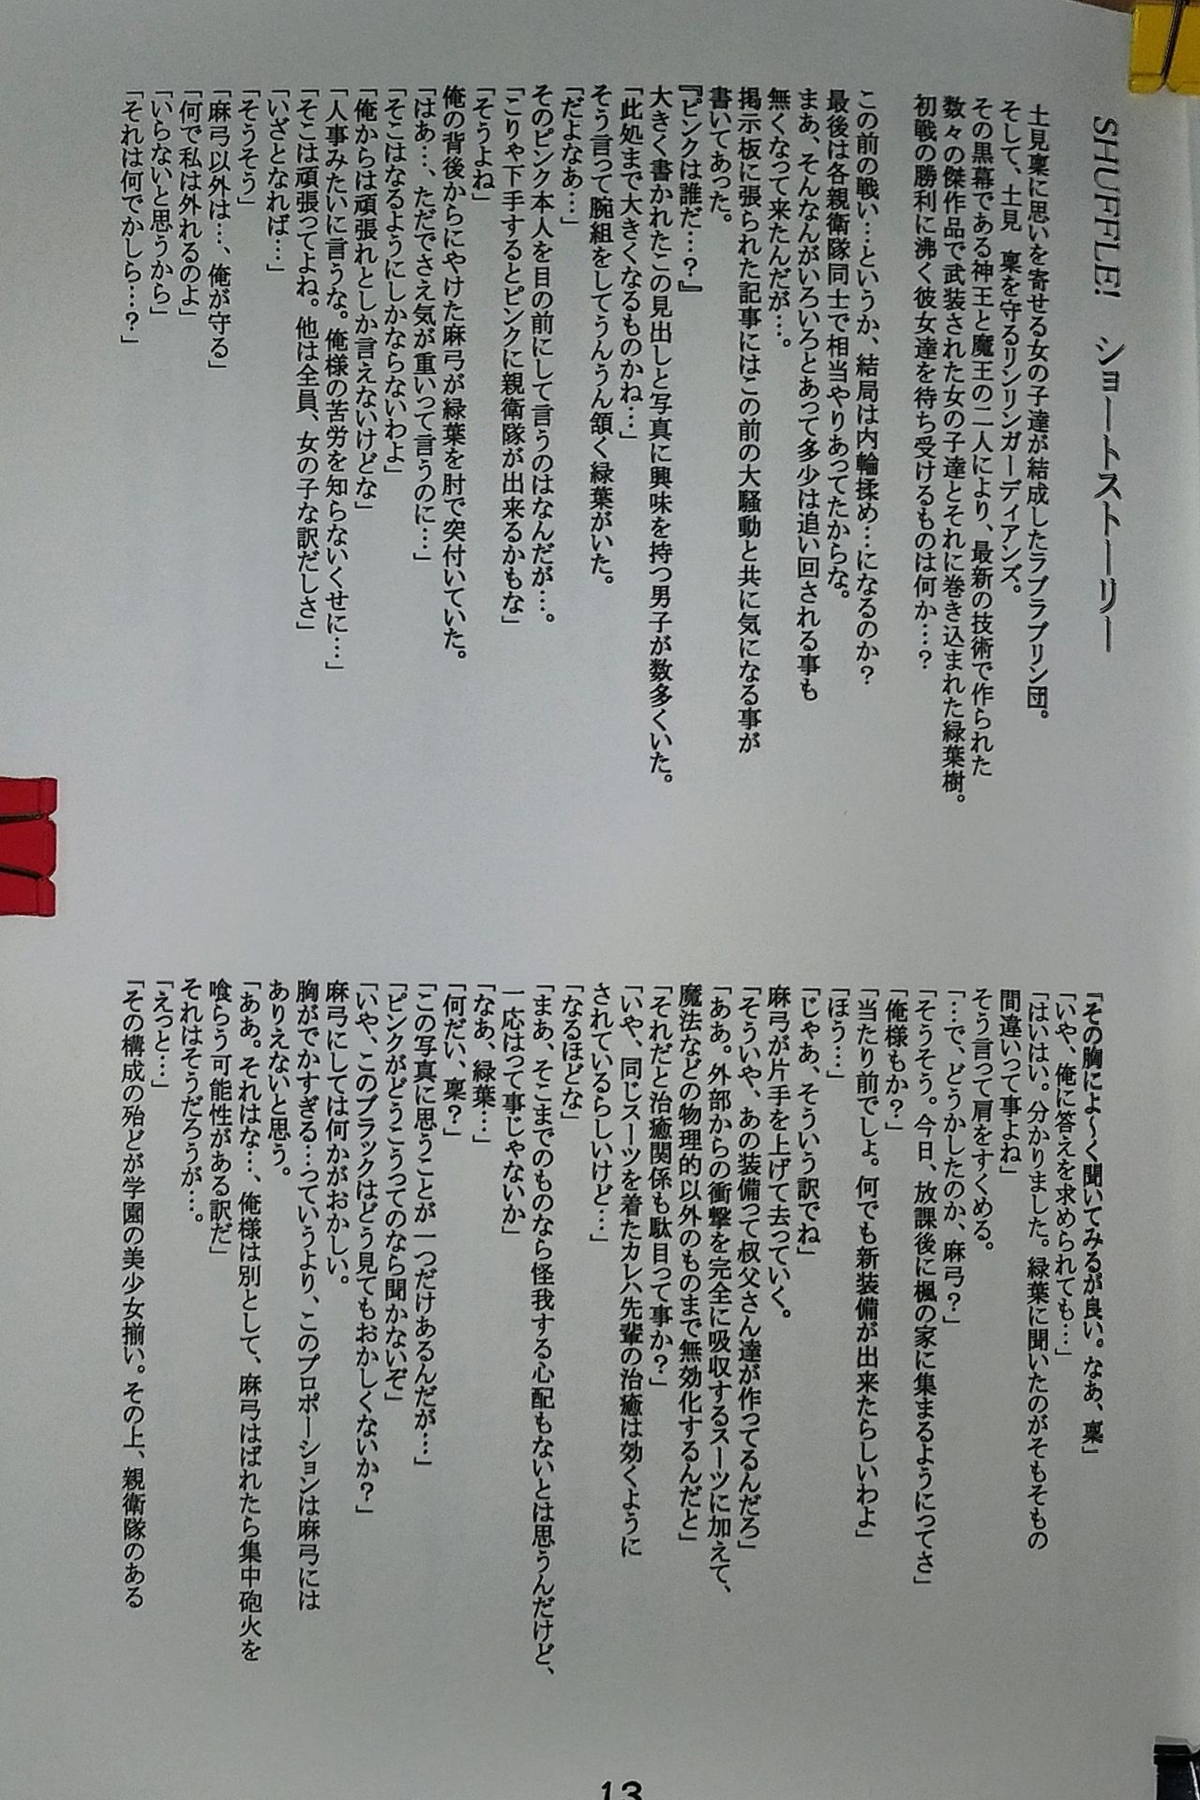 SHUFFLE! ショートストーリー
土見稟に思いを寄せる女の子達が結成したラブラブリン団。
そして、土見 稟を守るリンリンガーディアンズ。
その黒幕である神王と魔王の二人により、最新の技術で作られた
数々の傑作品で武装された女の子達とそれに巻き込まれた緑葉樹。
初戦の勝利に沸く彼女達を待ち受けるものは何か…?
この前の戦い…というか、結局は内輪揉め…になるのか?
最後は各親衛隊同士で相当やりあってたからな。
まあ、そんなんがいろいろとあって多少は追い回される事も
無くなって来たんだが…。
掲示板に張られた記事にはこの前の大騒動と共に気になる事が
書いてあった。
『ピンクは誰だ…?』
大きく書かれたこの見出しと写真に興味を持つ男子が数多くいた。
「此処まで大きくなるものかね…」
そう言って腕組をしてうんうん頷く緑葉がいた。
「だよなあ…」
そのピンク本人を目の前にして言うのはなんだが…。
「こりゃ下手するとピンクに親衛隊が出来るかもな」
「そうよね」
俺の背後からにやけた麻弓が緑葉を肘で突付いていた。
「はあ…、ただでさえ気が重いって言うのに…」
「そこはなるようにしかならないわよ」
「俺からは頑張れとしか言えないけどな」
「人事みたいに言うな。俺様の苦労を知らないくせに…」
「そこは頑張ってよね。他は全員、女の子な訳だしさ」
「いざとなれば…」
「そうそう」
「麻弓以外は…、俺が守る」
「何で私は外れるのよ」
「いらないと思うから」
「それは何でかしら…?」
『その胸によ～く聞いてみるが良い。なあ、稟」
「いや、俺に答えを求められても…」
「はいはい。分かりました。緑葉に聞いたのがそもそもの
間違いって事よね」
そう言って肩をすくめる。
「…で、どうかしたのか、麻弓?」
「そうそう。今日、放課後に楓の家に集まるようにってさ」
「俺様もか?」
「当たり前でしょ。何でも新装備が出来たらしいわよ」
「ほう…」
「じゃあ、そういう訳でね」
麻弓が片手を上げて去っていく。
「そういや、あの装備って叔父さん達が作ってるんだろ」
「ああ。外部からの衝撃を完全に吸収するスーツに加えて、
魔法などの物理的以外のものまで無効化するんだと」
「それだと治癒関係も駄目って事か?」
「いや、同じスーツを着たカレハ先輩の治癒は効くように
されているらしいけど…」
「なるほどな」
「まあ、そこまでのものなら怪我する心配もないとは思うんだけど、
一応はって事じゃないか」
「なあ、緑葉…」
「何だい、稟?」
「この写真に思うことが一つだけあるんだが…」
「ピンクがどうこうってのなら聞かないぞ」
「いや、このブラックはどう見てもおかしくないか?」
麻弓にしては何かがおかしい。
胸がでかすぎる…っていうより、このプロポーションは麻弓には
ありえないと思う。
「ああ。それはな…、俺様は別として、麻弓はばれたら集中砲火を
喰らう可能性がある訳だ」
それはそうだろうが…。
「えっと…」
「その構成の殆どが学園の美少女揃い。その上、親衛隊のある
13